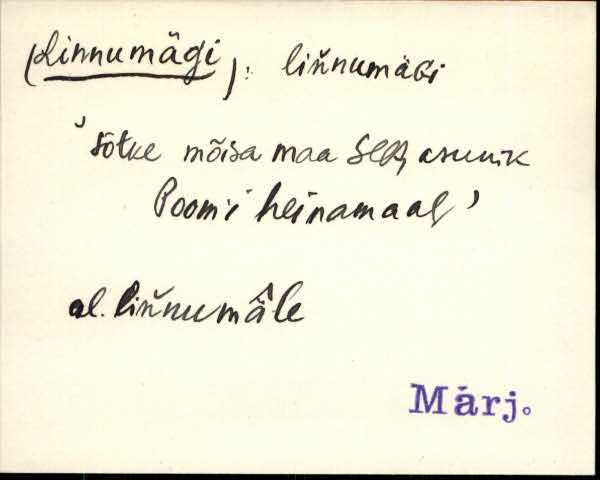 (Linnumägi): liňnumäGi
'Sõtke mõisa maa seeṣ, asunik
Poomi heinamaal'
al. liňnumä̂le
Märj.